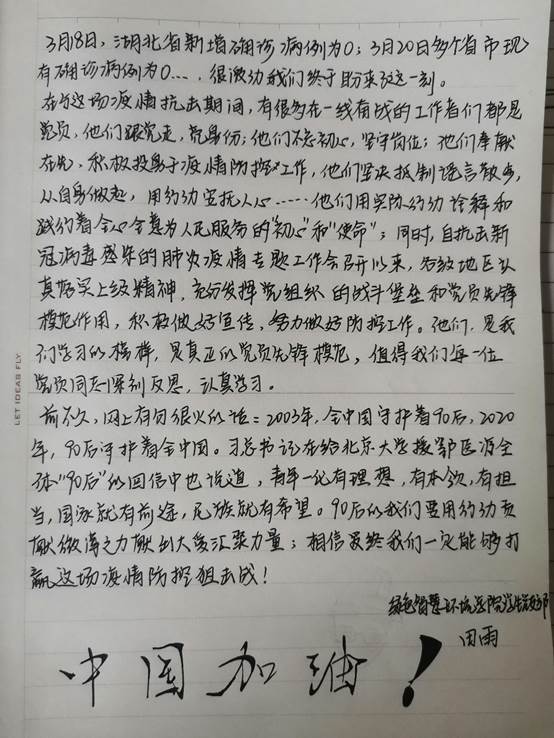 3月18日，湖北省新增确诊病例为0；3月20日多个省市现
有确诊病例为0…，很激动我们终于盼来了这一刻。
在与这场疫情抗击期间，有很多在一线奋战的工作者们都是
党员，他们跟党走，亮身份；他们不忘初心，坚守岗位；他们奉献
在先，积极投身于疫情防控工作，他们坚决抵制谣言散步，
从自身做起，用行动安抚人心……他们用实际行动诠释和
践行着全心全意为人民服务的"初心"和"使命"；同时，自抗击新
冠病毒感染的肺炎疫情专题工作会召开以来，各级地区认
真贯实上级精神，充分发挥党组织的战斗堡垒和党员先锋
模范作用，积极做好宣传，努力做好防控工作。他们，是我
们学习的榜样，是真正的党员先锋模范，值得我们每一位
党员同志深刻反思，认真学习。
前不久，网上有句很火的话：2003年，全中国守护着90后，2020
年，90后守护着全中国。习总书记在给北京大学援鄂医疗全
体"90后"的回信中也说道，青年一代有理想，有本领，有担
当，国家就有前途，民族就有希望。90后的我们要用行动贡
献微薄之力献出大爱汇聚力量；相信最终我们一定能够打
赢这场疫情防控狙击战！
绿色智慧环境学院学生党支部
田雨
中国加油！
LET IDEAS FLY